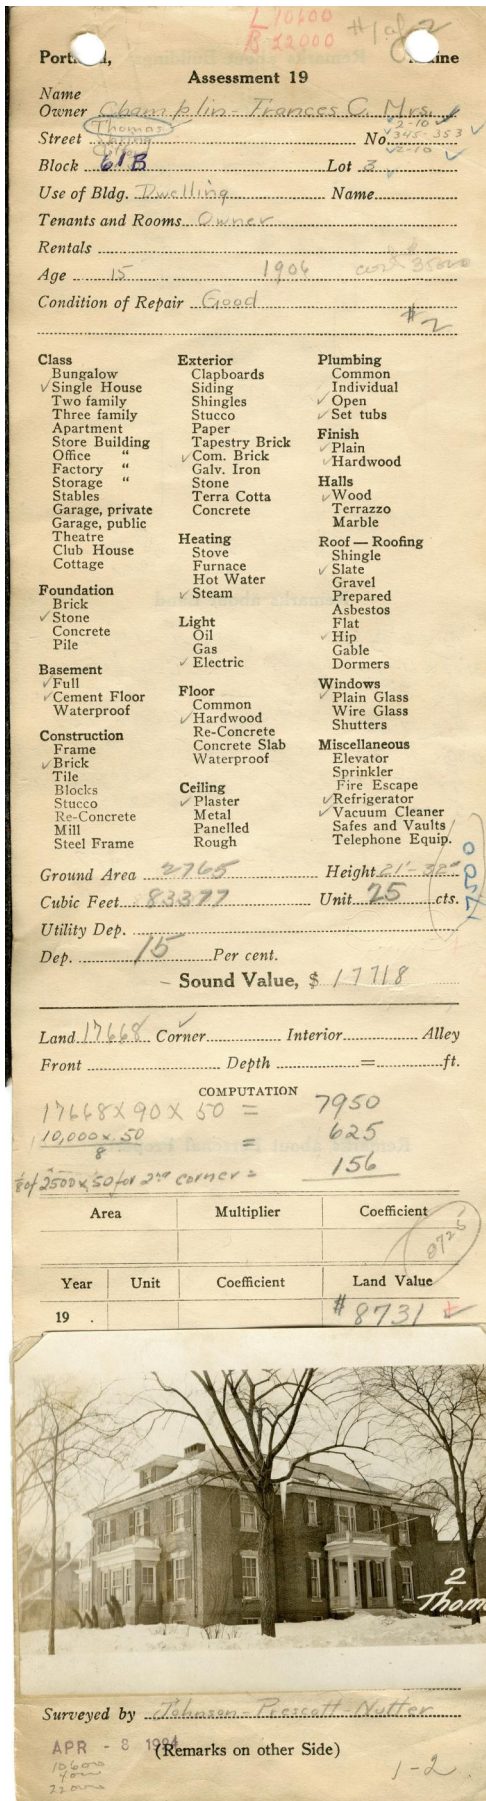 L 10600 #1 of 2
B 22000
Portland, Maine
Assessment 19
Name
Owner Champlin-Frances C. Mrs.
Thomas 2-10
Street No. 345-353
2-10
Block 61B Lot 3
Use of Bldg. Dwelling Name
Tenants and Rooms Owner
Rentals
Age 15 1906 cost 35000
Condition of Repair Good
#2
Class
Bungalow
✓Single House
Two family
Three family
Apartment
Store Building
Office "
Factory "
Storage "
Stables
Garage, private
Garage, public
Theatre
Club House
Cottage
Foundation
Brick
✓Stone
Concrete
Pile
Basement
✓Full
✓Cement Floor
Waterproof
Construction
Frame
✓Brick
Tile
Blocks
Stucco
Re-Concrete
Mill
Steel Frame
Exterior
Clapboards
Siding
Shingles
Stucco
Paper
Tapestry Brick
✓Com. Brick
Galv. Iron
Stone
Terra Cotta
Concrete
Heating
Stove
Furnace
Hot Water
✓Steam
Light
Oil
Gas
✓Electric
Floor
Common
✓Hardwood
Re-Concrete
Concrete Slab
Waterproof
Ceiling
✓Plaster
Metal
Panelled
Rough
Plumbing
Common
Individual
✓Open
✓Set tubs
Finish
✓Plain
✓Hardwood
Halls
✓Wood
Terrazzo
Marble
Roof — Roofing
Shingle
✓Slate
Gravel
Prepared
Asbestos
Flat
✓Hip
Gable
Dormers
Windows
✓Plain Glass
Wire Glass
Shutters
Miscellaneous
Elevator
Sprinkler
Fire Escape
✓Refrigerator
✓Vacuum Cleaner
Safes and Vaults
Telephone Equip.
Ground Area 2765 Height 21'-32'
Cubic Feet 83377 Unit 25 cts.
Utility Dep.
Dep. 15 Per cent.
Sound Value, $ 17718
Land 17668 Corner ✓ Interior Alley
Front Depth = ft.
COMPUTATION
17668 x 90 x 50 = 7950
10,000 x 50 = 625
8
1/8 of 2500 x 50 for 2nd corner = 156
Area Multiplier Coefficient
8725
Year Unit Coefficient Land Value
19 . # 8731
2
Thom
Surveyed by Johnson-Prescott-Nutter
APR - 8 1924 (Remarks on other Side)
10,600
22000
1-2